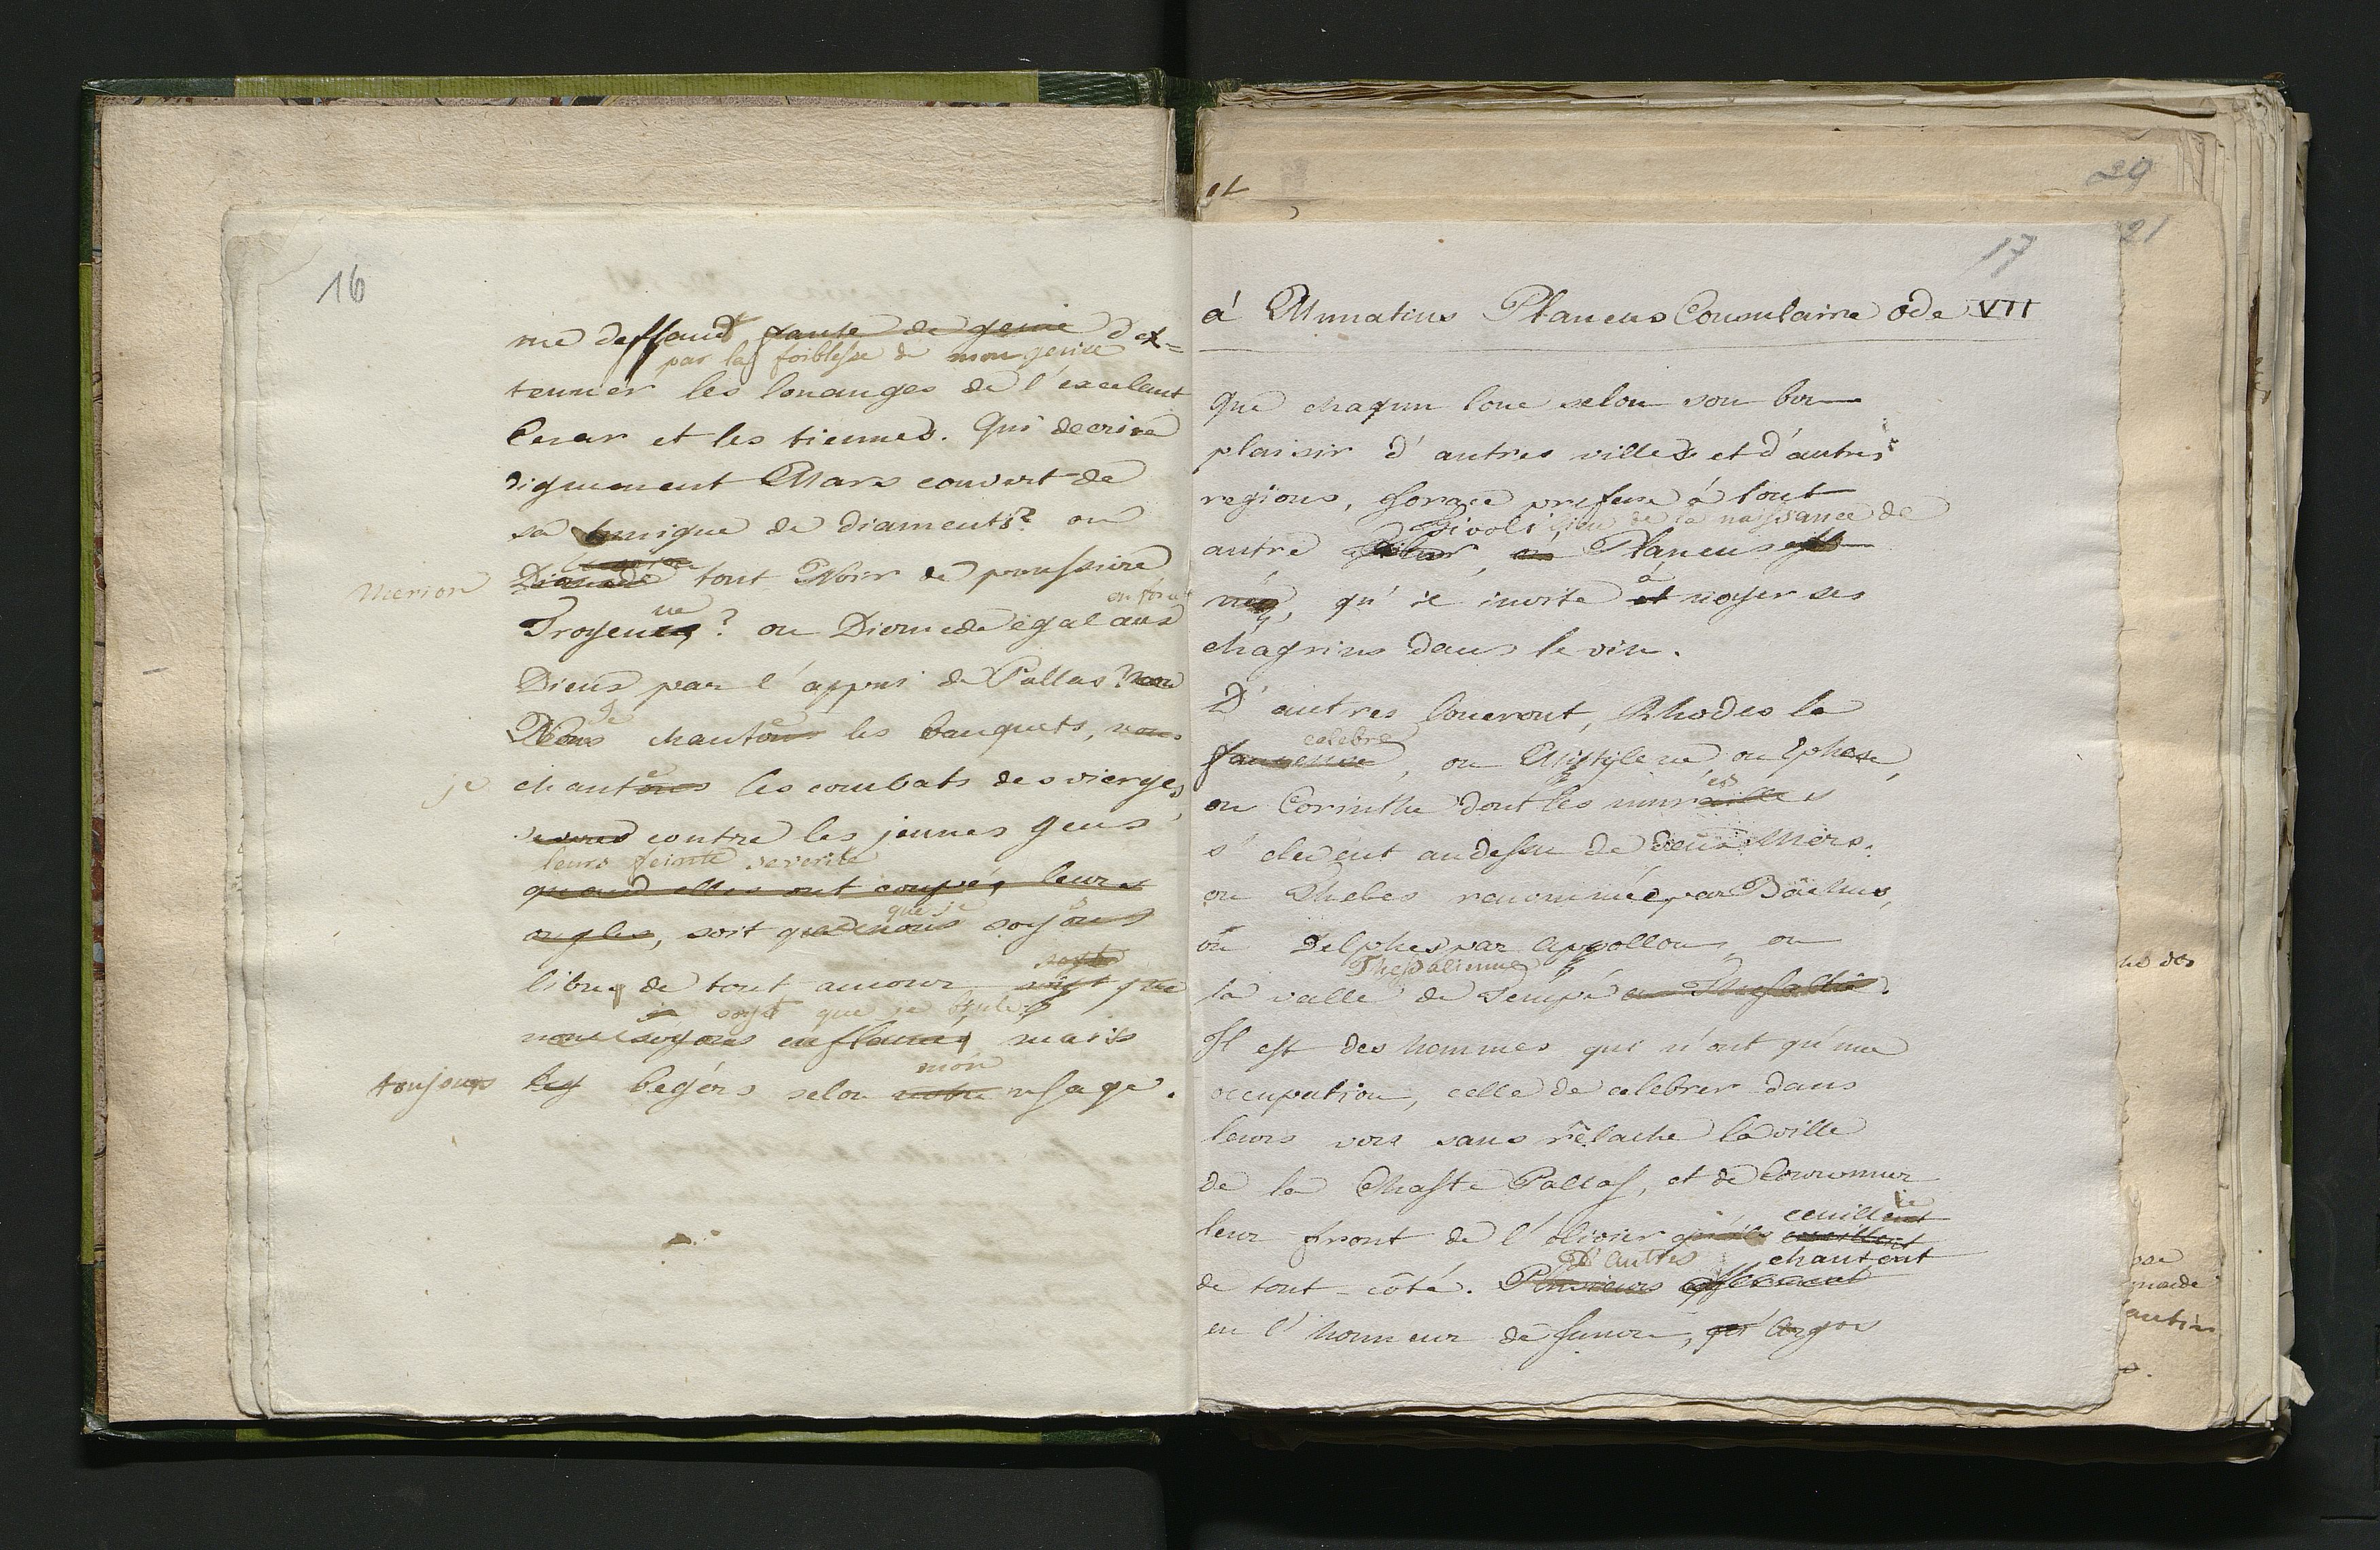 16
me deffand faute de genie d'ex=
par la foiblesse de mon genie
tenuer les louanges de l'excelant
Cesar et les tiennes. Qui decrire
dignement Mars couvert de
sa tunique de diaments? ou
Merion Diomede tout Noir de poussiere
Troyenne? ou Diomede égal aux
Dieux par l'appui de Pallas? nou
je
Nous chantons les banquets, nous
je chantons les combats des vierges
contre les jeunes gens
leurs feinte severite
quand elles ont coupés leurs
que je
ongles, soit que nous soyons
libres de tout amour, soyt que
soyt que je brule
nous soyons enflamés, mais
mon
toujours legers selon notre usage.
et
29
21
17
á Munatius Plancus Consulaire ode VII
Que chaqun loue selon son bon
plaisir d'autres villes et d'autres
regions, horace prefere à tout
Tivoli, lieu de la naissance de
autre Tibur, où Plancus est
à
né, qu'il invite et noyer ses
chagrins dans le vin.
D'autres loueront, Rhodes la
celebre
fameuse, ou Mytilene ou Ephese,
ou Corinthe dont les murailles
s'elevent audessu de deux Mers.
ou Thebes renommée par Bachus,
ou Delphes par Appollon, ou
Thessalienne
la valle de Tempé en Thessallie.
Il est des hommes qui n'ont qu'une
occupation, celle de celebrer dans
leurs vers sans rêlache la ville
de la Chaste Pallas, et de Couronner
ceuillent
leur front de l'olivier qu'ils ceuillent
D'autres chantent
de tout côté. Plusieurs
en l'honneur de Junon, Argos